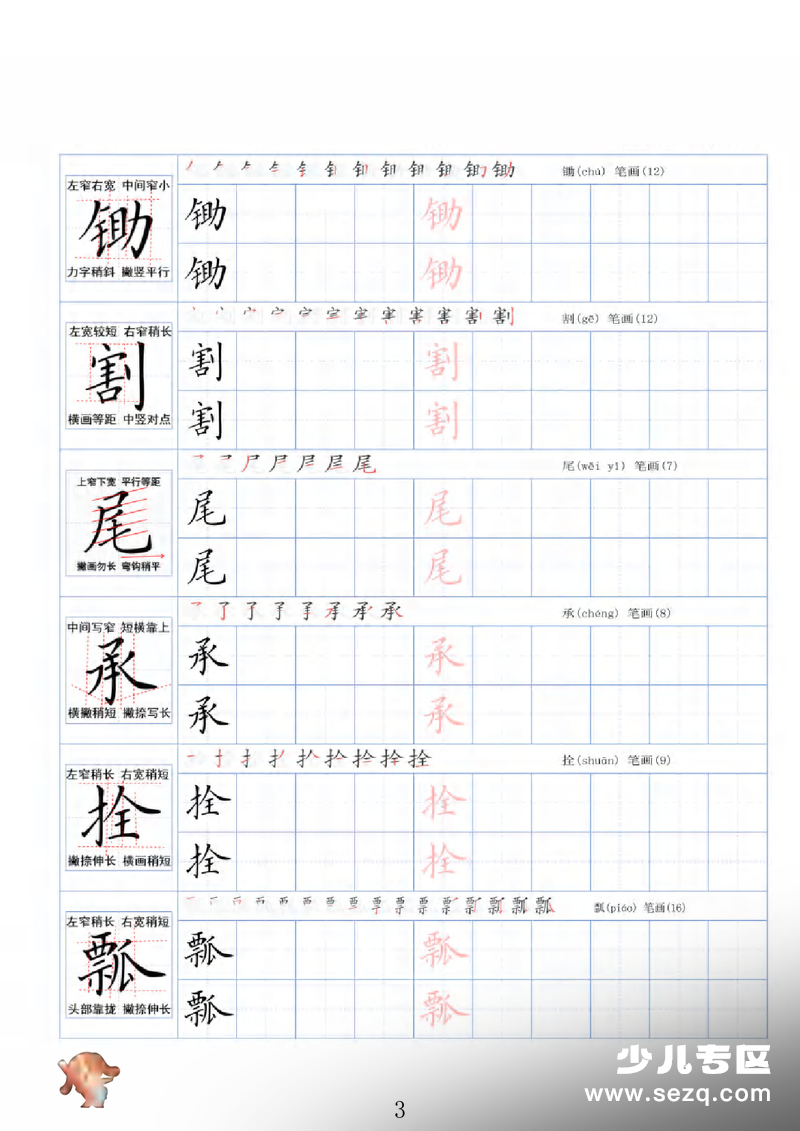 锄(chú) 笔画(12)
左窄右宽 中间窄小
锄 锄 锄
力字稍斜 撇竖平行
锄 锄
割(gē) 笔画(12)
左宽较短 右窄稍长
割 割 割
横画等距 中竖对点
割 割
尾(wěi yǐ) 笔画(7)
上窄下宽 平行等距
尾 尾 尾
撇画勿长 弯钩稍平
尾 尾
承(chéng) 笔画(8)
中间写窄 短横靠上
承 承 承
横撇稍短 撇捺写长
承 承
拴(shuān) 笔画(9)
左窄稍长 右宽稍短
拴 拴 拴
撇捺伸长 横画稍短
拴 拴
瓢(piáo) 笔画(16)
左窄稍长 右宽稍短
瓢 瓢 瓢
头部靠拢 撇捺伸长
瓢 瓢
少儿专区
www.sezq.com
3